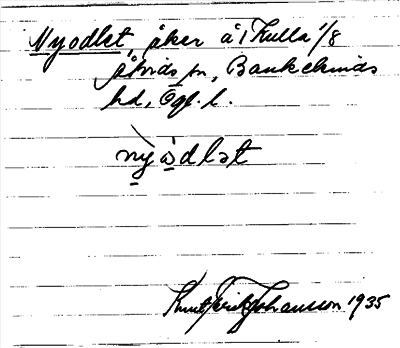 Nyodlet, åker å Kulla 1/8
Åtvids sn, Bankekinds
hd, Ögl. l.
nyòdlət
Knut Erik Johansson 1935